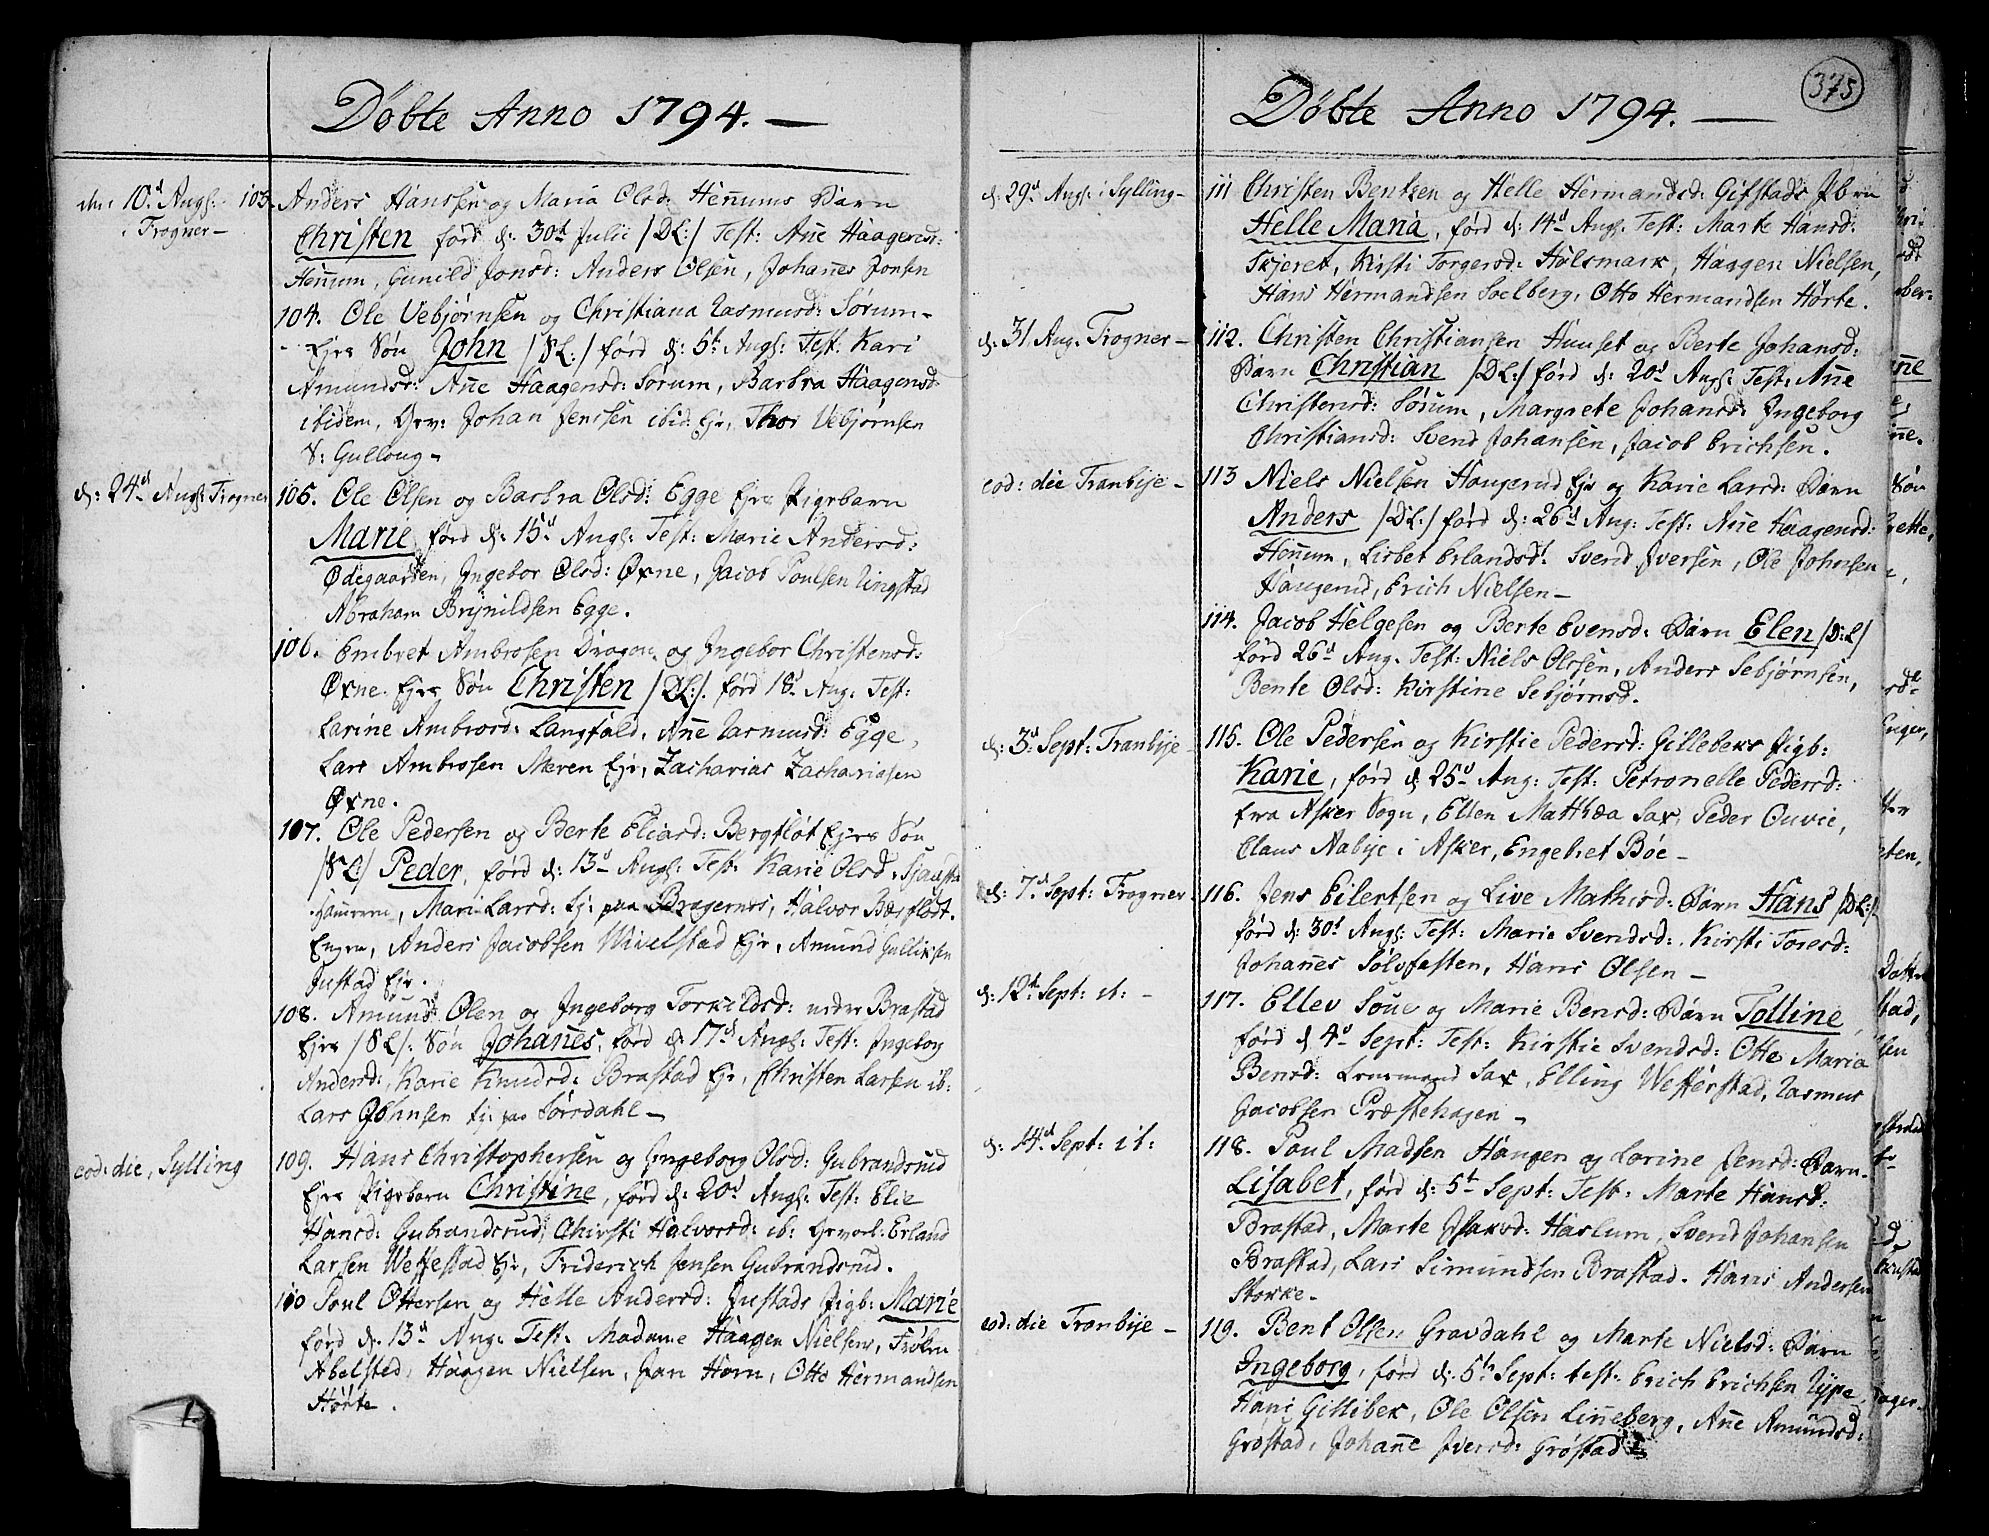 Döbte Anno 1794. —
den 10d Augs: i Frogner —
103. Anders Hanssen og Maria Olsd: Hennums Barn
Christen förd d: 30d Julii /DL:/ Test: Anne Haagensd:
Hennum, Gunild Jonsd: Anders Olsen, Johannes Jonsen
104. Ole Vebjørnsen og Christiana Rasmusd: Sørum-
Ejes Søn John /SL:/ förd d: 5t Augs: Test: Kari
Amundsd: Anne Haagensd: Sørum, Barbra Haagensd:
ibidem, Johan Jenssen ibid: Ejr, Thor Vebjørnsen
S: Gulloug —
d: 24d Augs: Frogner
105. Ole Olsen og Barbra Olsd: Egge Ejes Pigebarn
Marie förd d: 15d Augs: Test: Marie Andersd:
Ødegaarden, Ingebor Olsd: Øxne, Jacob Poulsen Ringstad
Abraham Brynildsen Egge.
106. Embret Ambrosen Dragon og Ingebor Christensd:
Øxne Ejes Søn Christen /DL:/ förd 18d Aug: Test:
Larine Ambrosd: Langfald, Anne Rasmusd: Egge,
Lars Ambrosen Meren Ejr, Zacharias Zachariasen
Øxne.
107. Ole Pedersen og Berte Eliasd: Bergflöt Ejes Søn
/SL:/ Peder, förd d: 13d Augs: Test: Karie Olsd:
Mari Larsd: paa Bragernes, Halvor Bergflödt.
Engen, Anders Jacobsen Wivelstad Ejr, Amund Gulliksen
Justad Ejr.
108. Amund Olen og Ingeborg Torkildsd: nedre Brastad
Ejes /SL/. Søn Johannes, förd d: 17d Augs: Test: Ingeborg
Andersd: Karie Knudsd: Brastad Ejr, Christen Larsen ib:
Lars Johnsen Ej: paa Sørsdahl —
eod: die, Sylling
109. Hans Christophersen og Ingeborg Olsd: Gubrandsrud
Ejes Pigebarn Christine, förd d: 20d Augs: Test: Elie
Hansd: Gubrandsrud, Chirsti Halvorsd: ib: Erland
Larsen Weffestad Ejr, Friderich Jensen Gubrandsrud.
110 Poul Ottersen og Helle Andersd: Justads Pigb: Marie
förd d: 13d Aug: Test: Madame Haagen Nielsens, Fröken
Abelsted, Haagen Nielsen, Jan Horn, Otto Hermandsen
Hörte.
375
Döbte Anno 1794. —
d: 29d Augs: i Sylling —
111 Christen Bentsen og Helle Hermandsd: Gifstads
Helle Maria, förd d: 14d Augs: Test: Marte Hansd:
Skjeret, Kirsti Torgersd: Holsmark, Haagen Nielsen,
Hans Hermandsen Soelberg, Otto Hermandsen Hörte.
d: 31 Aug. Frogner —
112. Christen Christiansen Huuset og Berte Johansd:
Barn Christian /DL:/ förd d: 20d Augs: Test: Anne
Christensd: Sørum, Margrete Johansd: Ingeborg
Christiansd: Svend Johansen, Jacob Erichsen.
eod: die Tranbye —
113 Niels Nielsen Haugerud Ejr og Karie Larsd: Barn
Anders /DL:/ förd d: 26d Aug: Test: Anne Haagensd:
Honum, Lisbet Erlandsd: Svend Iversen, Ole Johnsen
Haugerud, Erich Nielsen —
114. Jacob Helgesen og Berte Evensd: Barn Elen /D:L/
förd 26d Aug. Test: Niels Olssen, Anders Sebjørnsen,
Bente Olsd: Kirstine Sebjørnsd.
d: 3d Sept: Tranbye —
115. Ole Pedersen og Kirstie Pedersd: Gillebeks Pigb:
Karie, förd d: 25d Aug: Test: Petronelle Pedersd:
fra Asker Sogn, Ellen Matthea Sax, Peder Ouvie,
Claus Nabye i Asker, Engebret Böe —
d: 7d Sept: Frogner
116. Jens Eilertsen og Live Mathisd: Barn Hans /DL:/
förd d: 30d Augs: Test: Marie Svendsd: Kirsti Toresd:
Johannes Sølvfasten, Hans Olsen —
d: 12t Sept: it: —
117. Ellev Soue og Marie Bensd: Barn Tolline
förd d 4d Sept: Test: Kirstie Svendsd: Otte Maria
Bensd: Lensmand Sax, Elling Wefferstad, Rasmus
Jacobsen Præstehagen —
d: 14d Sept: it:
118. Poul Madsen Haugen og Larine Jensd: Barn
Lisabet, förd d: 5t Sept: Test: Marte Hansd:
Brastad, Marte Isaksd: Haslum, Svend Johansen
Brastad, Lars Simundsen Brastad. Hans Andersen
Stokke —
eod: die Tranbye —
119. Bent Olsen Gravdahl og Marte Nielsd: Barn
Ingeborg, förd d: 5th Sept: test: Erich Erichsen Rype,
Hans Gillibek, Ole Olsen Linneberg, Anne Amundsd:
Gröstad, Johanne Iversd: Gröstad